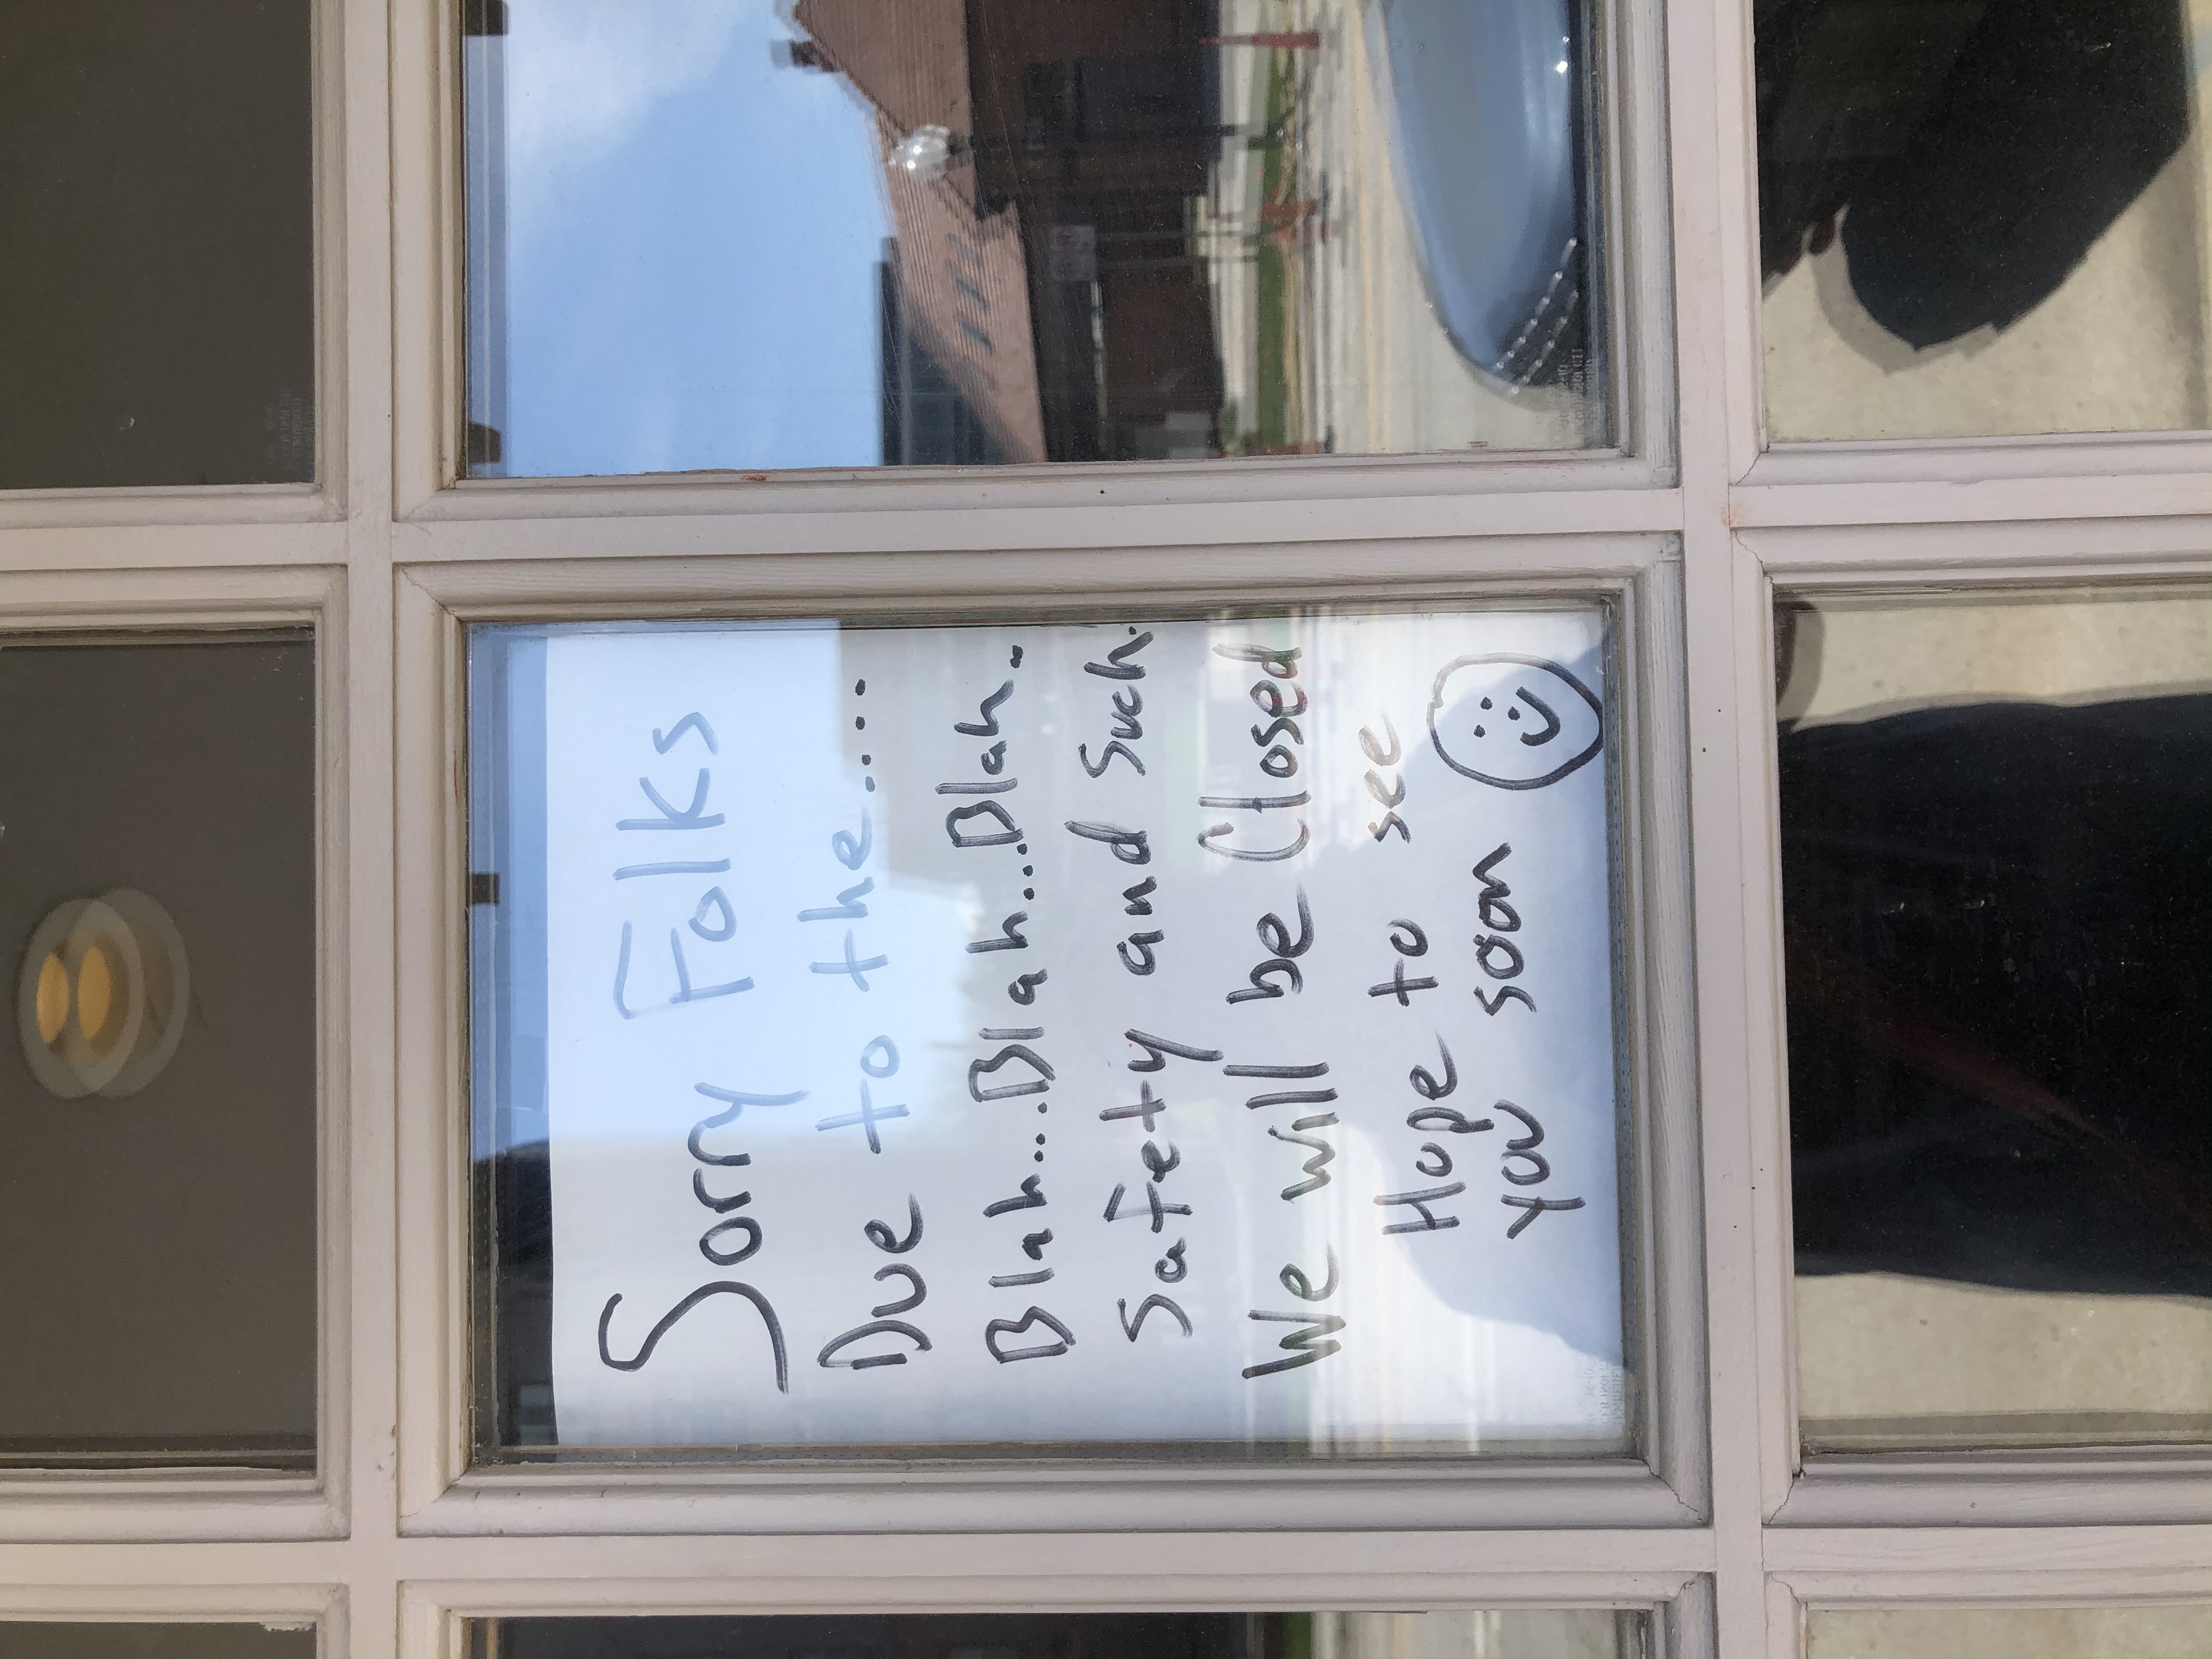 Sorry Folks
Due to the....
Blah...Blah...Blah..
Safety and Such.
We will be Closed
Hope to see
you soon